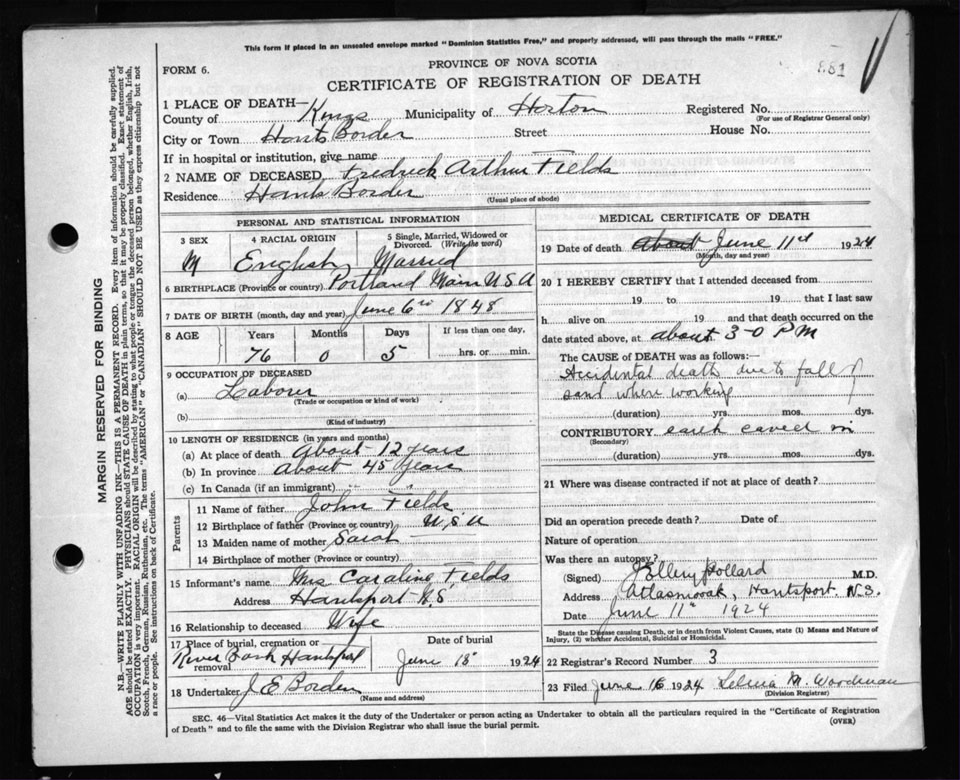 This form if placed in an unsealed envelope marked "Dominion Statistics Free," and properly addressed, will pass through the mails "FREE."
881
FORM 6.
PROVINCE OF NOVA SCOTIA
CERTIFICATE OF REGISTRATION OF DEATH
1 PLACE OF DEATH—
County of Kings Municipality of Horton Registered No.
(For use of Registrar General only)
City or Town Hants Border Street House No.
If in hospital or institution, give name
2 NAME OF DECEASED Fredrick Arthur Fields
Residence Hants Border
(Usual place of abode)
PERSONAL AND STATISTICAL INFORMATION
3 SEX 4 RACIAL ORIGIN 5 Single, Married, Widowed or Divorced. (Write the word)
M English Married
6 BIRTHPLACE (Province or country) Portland Main U.S.A
7 DATE OF BIRTH (month, day and year) June 6th 1848
8 AGE Years Months Days If less than one day,
76 0 5 hrs. or min.
9 OCCUPATION OF DECEASED
(a) Labourer
(Trade or occupation or kind of work)
(b)
(Kind of industry)
10 LENGTH OF RESIDENCE (in years and months)
(a) At place of death About 12 years
(b) In province About 45 years
(c) In Canada (if an immigrant)
Parents
11 Name of father John Fields
12 Birthplace of father (Province or country) U.S.A
13 Maiden name of mother Sarah
14 Birthplace of mother (Province or country)
15 Informant's name Mrs Caroline Fields
Address Hantsport N.S
16 Relationship to deceased Wife
17 Place of burial, cremation or removal Date of burial
River Bank Hantsport June 13 1924
18 Undertaker J E Borden
(Name and address)
MEDICAL CERTIFICATE OF DEATH
19 Date of death About June 11th 1924
(Month, day and year)
20 I HEREBY CERTIFY that I attended deceased from
19 to 19 that I last saw
h alive on 19 and that death occurred on the
date stated above, at about 3-0 PM
The CAUSE of DEATH was as follows:—
Accidental death due to fall of
sand where working
(duration) yrs. mos. dys.
CONTRIBUTORY earth caved in
(Secondary)
(duration) yrs. mos. dys.
21 Where was disease contracted if not at place of death?
Did an operation precede death? Date of
Nature of operation
Was there an autopsy?
(Signed) Pollard M.D.
Address Hantsport, N.S.
Date June 11th 1924
State the Disease causing Death, or in death from Violent Causes, state (1) Means and Nature of
Injury, (2) whether Accidental, Suicidal or Homicidal.
22 Registrar's Record Number 3
23 Filed June 16 1924 M. Woodman
(Division Registrar)
SEC. 46—Vital Statistics Act makes it the duty of the Undertaker or person acting as Undertaker to obtain all the particulars required in the "Certificate of Registration
of Death" and to file the same with the Division Registrar who shall issue the burial permit. (OVER)
MARGIN RESERVED FOR BINDING
N.B.—WRITE PLAINLY WITH UNFADING INK—THIS IS A PERMANENT RECORD. Every item of information should be carefully supplied.
AGE should be stated EXACTLY. PHYSICIANS should STATE CAUSE OF DEATH in plain terms, so that it may be properly classified. Exact statement of
OCCUPATION is very important. RACIAL ORIGIN will be described by stating to what people or tongue the deceased person belonged, whether English, Irish,
Scotch, French, German, Russian, Ruthenian, etc. The terms "AMERICAN" or "CANADIAN" SHOULD NOT BE USED as they express citizenship but not
a race or people. See instructions on back of Certificate.